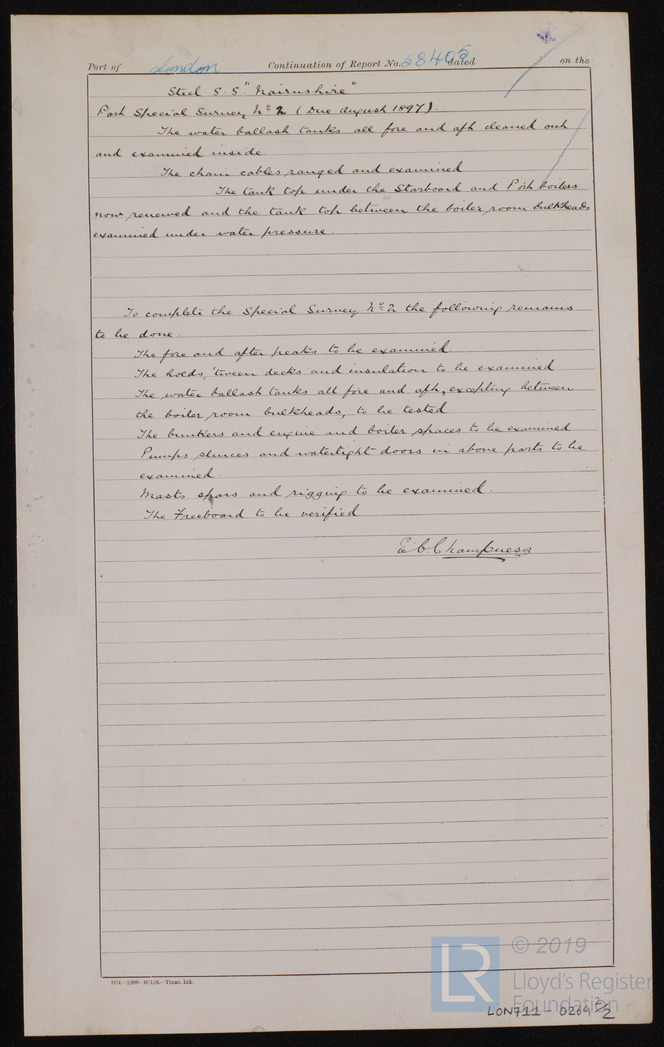 Port of London Continuation of Report No. 58405 dated on the
Steel S.S "Nairnshire"
Part Special Survey No 2 (Due August 1897).
The water ballast tanks all fore and aft cleaned out
and examined inside
The chain cables ranged and examined
The tank top under the Starboard and Port boilers
now renewed and the tank top between the boiler room bulkheads
examined under water pressure.
To complete the Special Survey No 2 the following remains
to be done.
The fore and after peaks to be examined
The holds, 'tween decks and insulation to be examined
The water ballast tanks all fore and aft, excepting between
the boiler room bulkheads, to be tested
The bunkers and engine and boiler spaces to be examined
Pumps sluices and watertight doors in above parts to be
examined
Masts spars and rigging to be examined.
The Freeboard to be verified
E C Champness
Trans. Ink.
© 2019
LR
Lloyd's Register
Foundation
LON711-0269 2/2